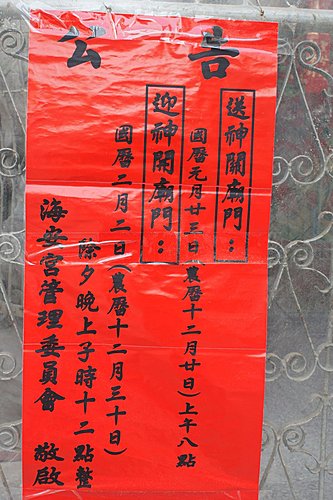 公告
送神開廟門：
國曆元月廿三日(農曆十二月廿日)上午八點
迎神開廟門：
國曆二月二日(農曆十二月三十日)
除夕晚上子時十二點整
海安宮管理委員會 敬啟